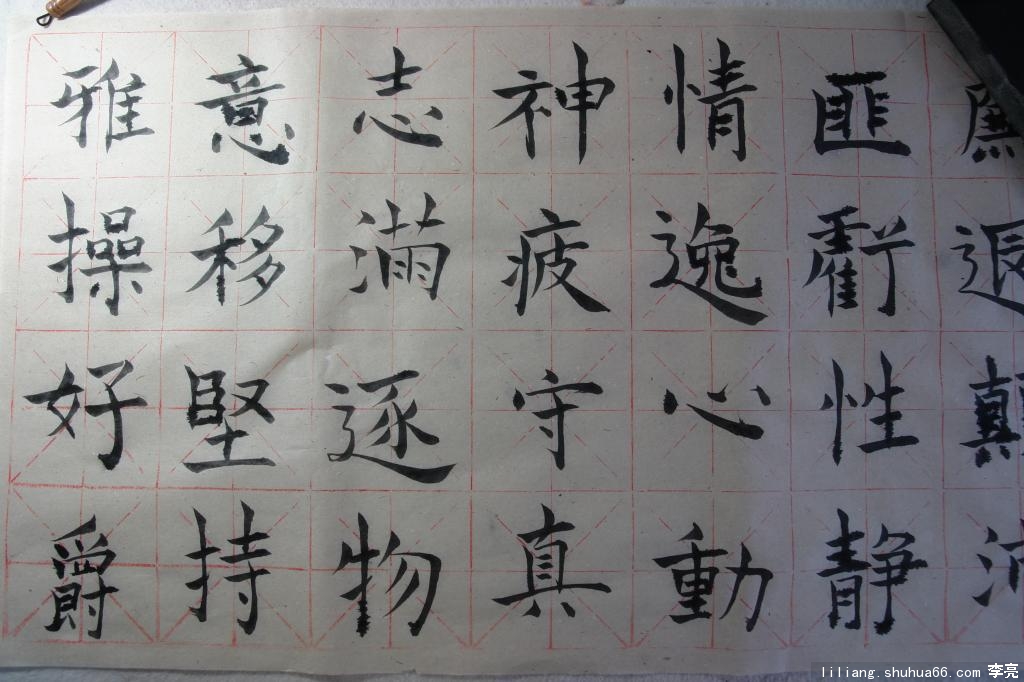 廉退
匪虧性靜
情逸心動
神疲守真
志滿逐物
意移堅持
雅操好爵
liliang.shuhua66.com 李亮